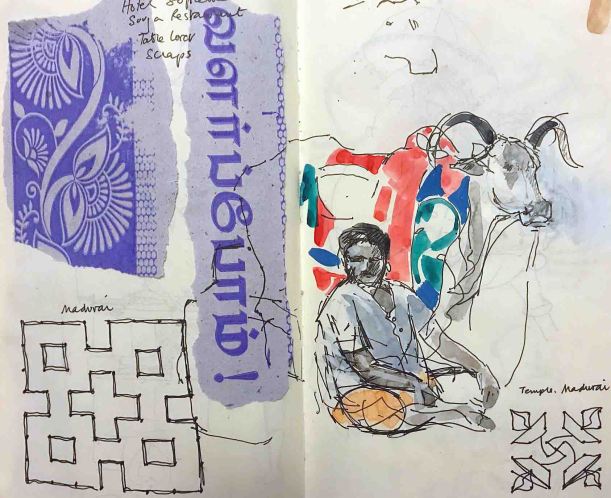 Hotel Supreme
Surya Restaurant
Table Cover
Scraps
வளர்ப்போம்!
Madurai
Temple. Madurai